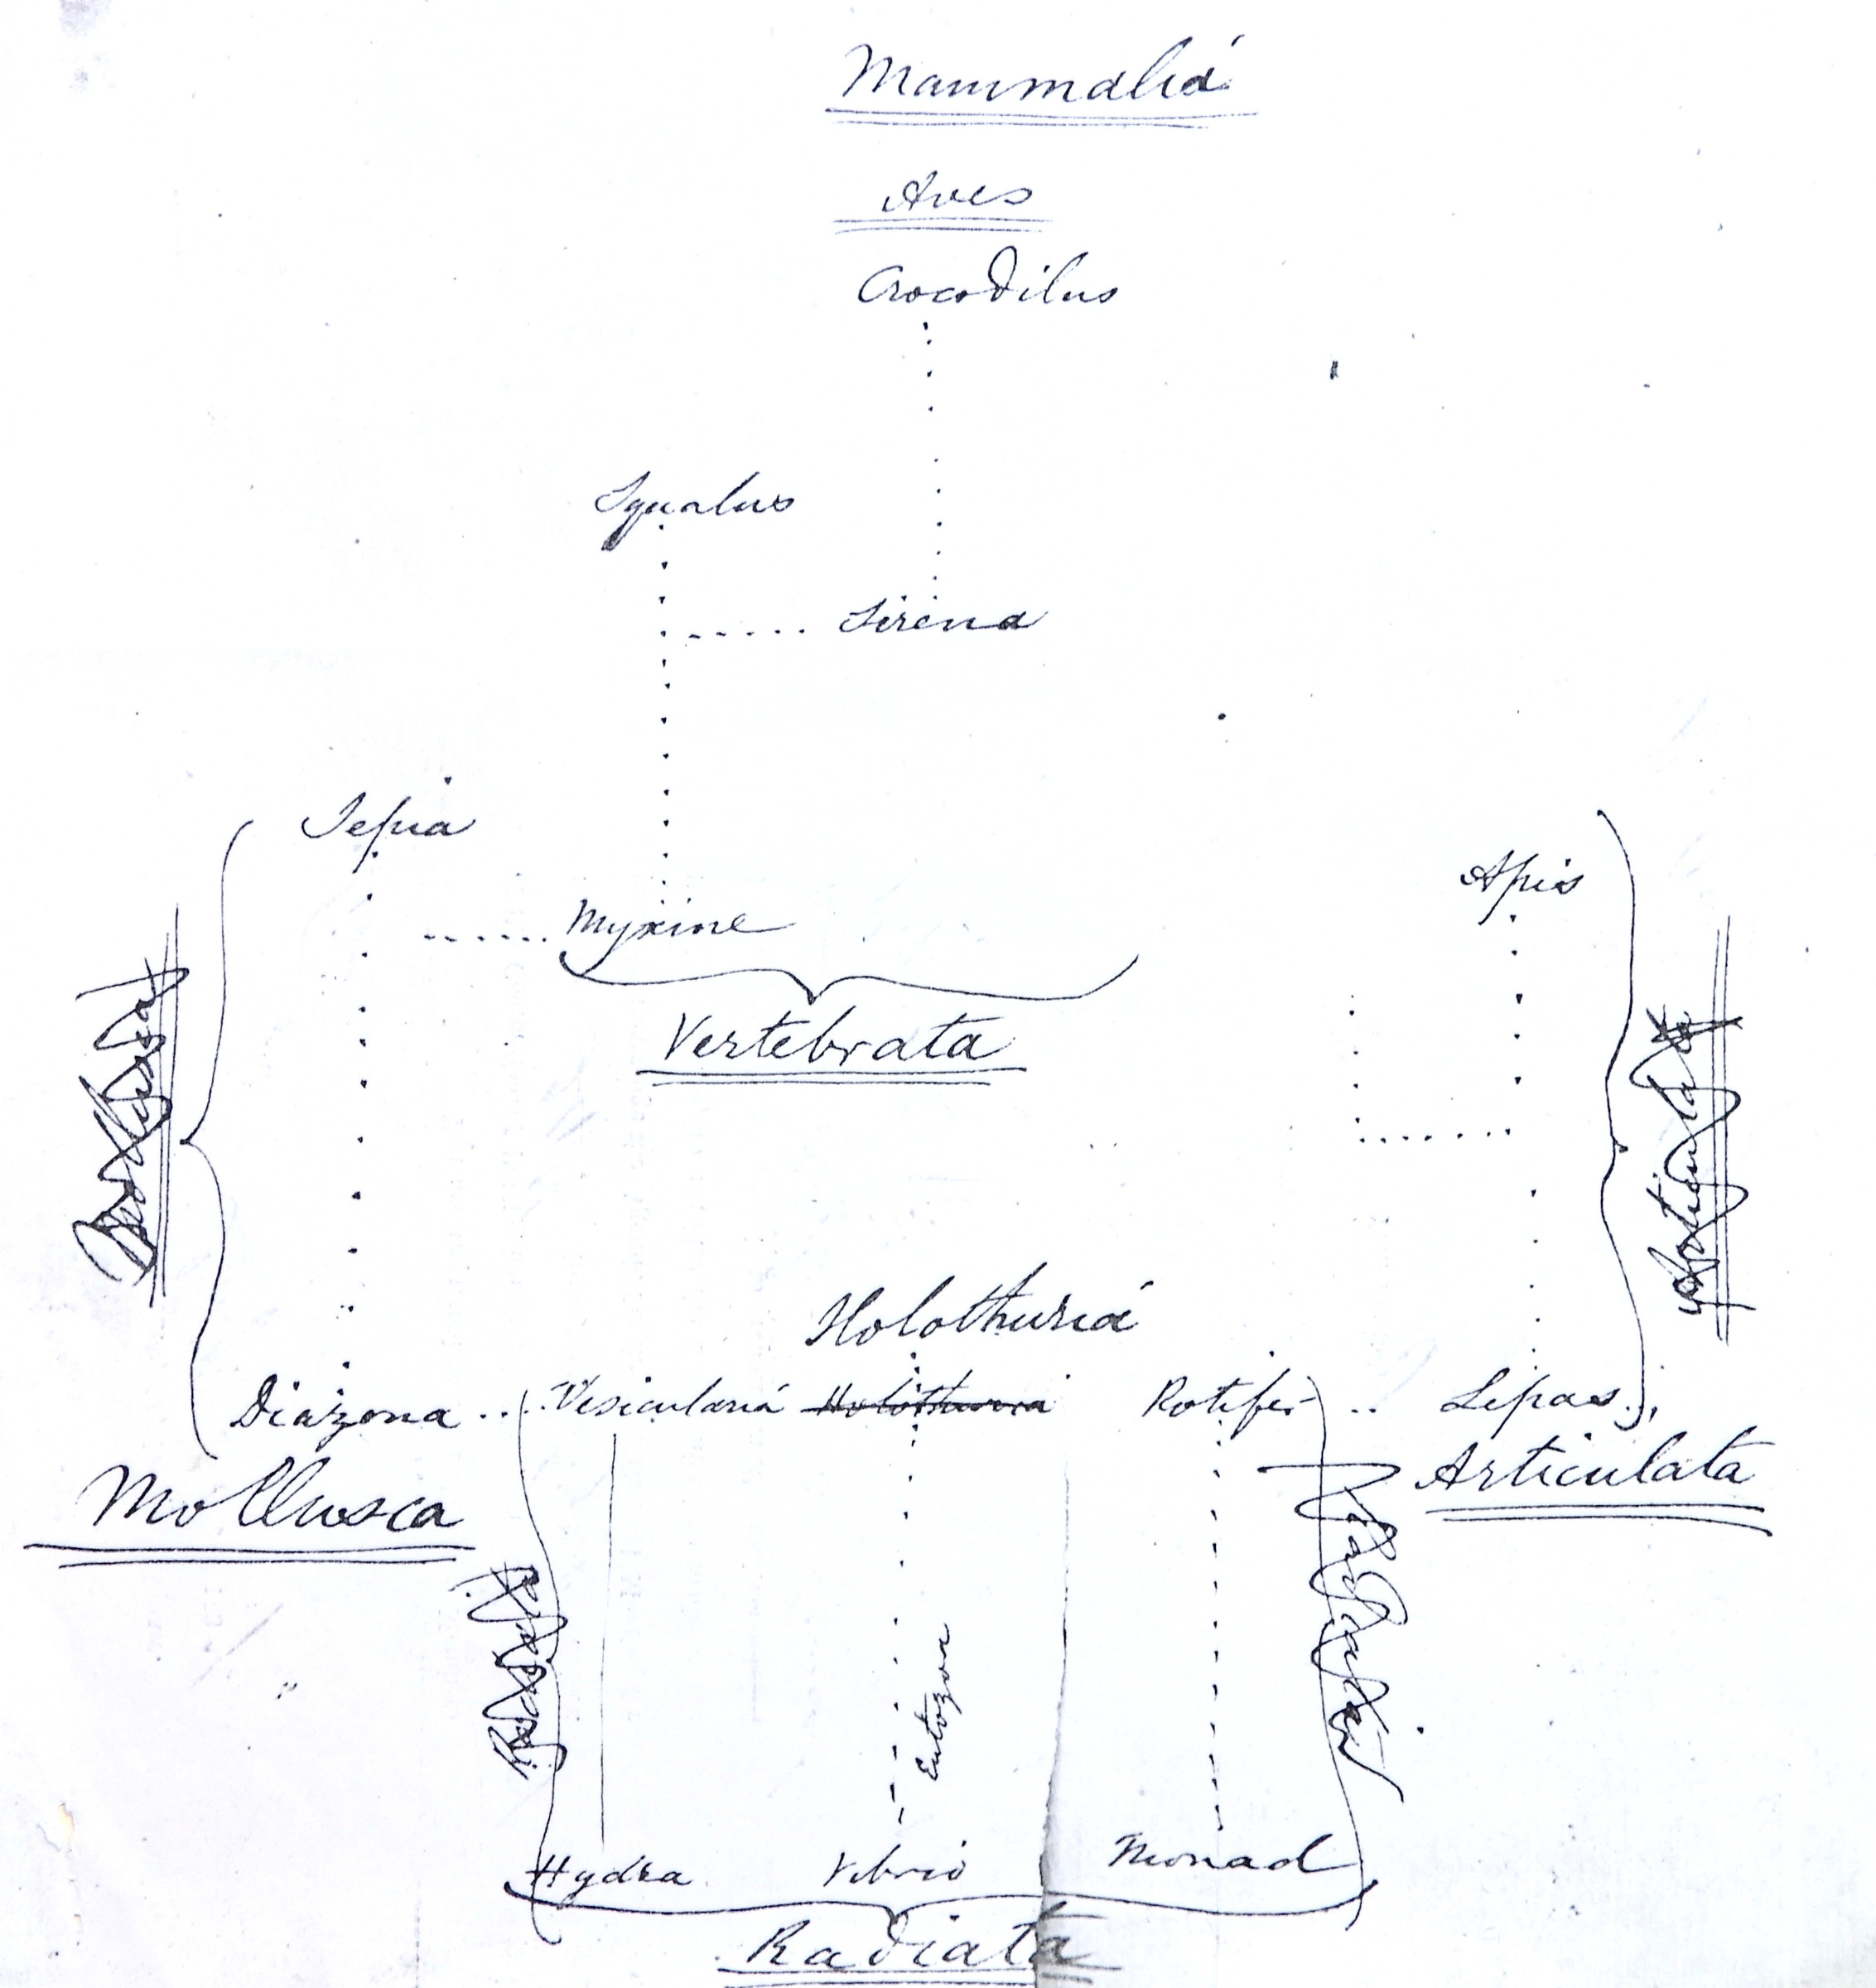 Mammalia
Aves
Crocodilus
Squalus
Sirena
Sepia
Apis
Myxine
Vertebrata
Mollusca
Articulata
Holothuria
Diazona Vesicularia Holothuria Rotifer Lepas
Mollusca
Articulata
Radiata
Entozoa
Hydra Vibrio Monad
Radiata